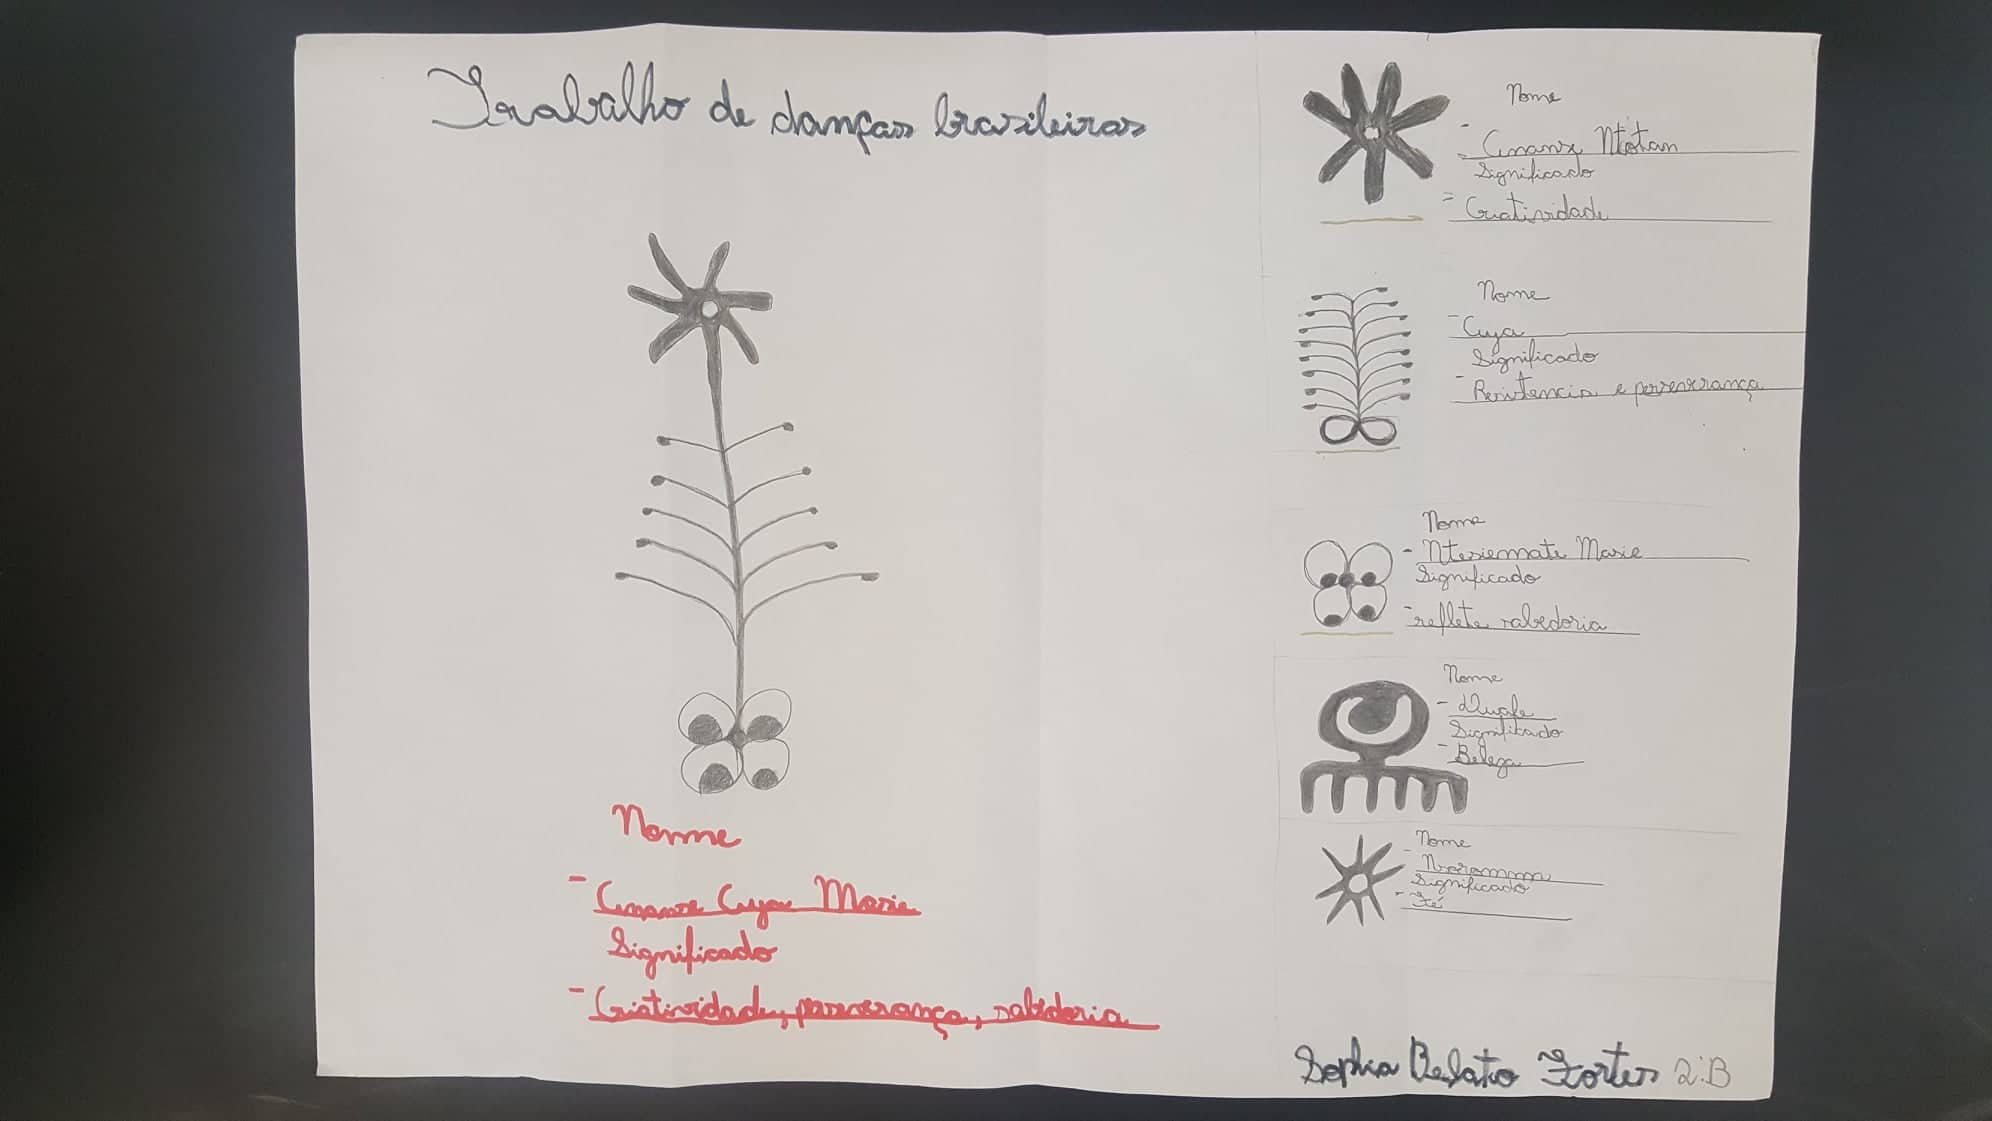 Trabalho de danças brasileiras
Nome
- Ananse Cuya Masie
Significado
- Criatividade, perseverança, sabedoria
Nome
- Ananse Ntotan
Significado
- Criatividade
Nome
- Cuya
Significado
- Resistencia e perseverança
Nome
- Ntesiemate Masie
Significado
- reflete sabedoria
Nome
- Duafe
Significado
- Beleza
Nome
Significado
- Fé
Sophia Belato Fortes 2:B